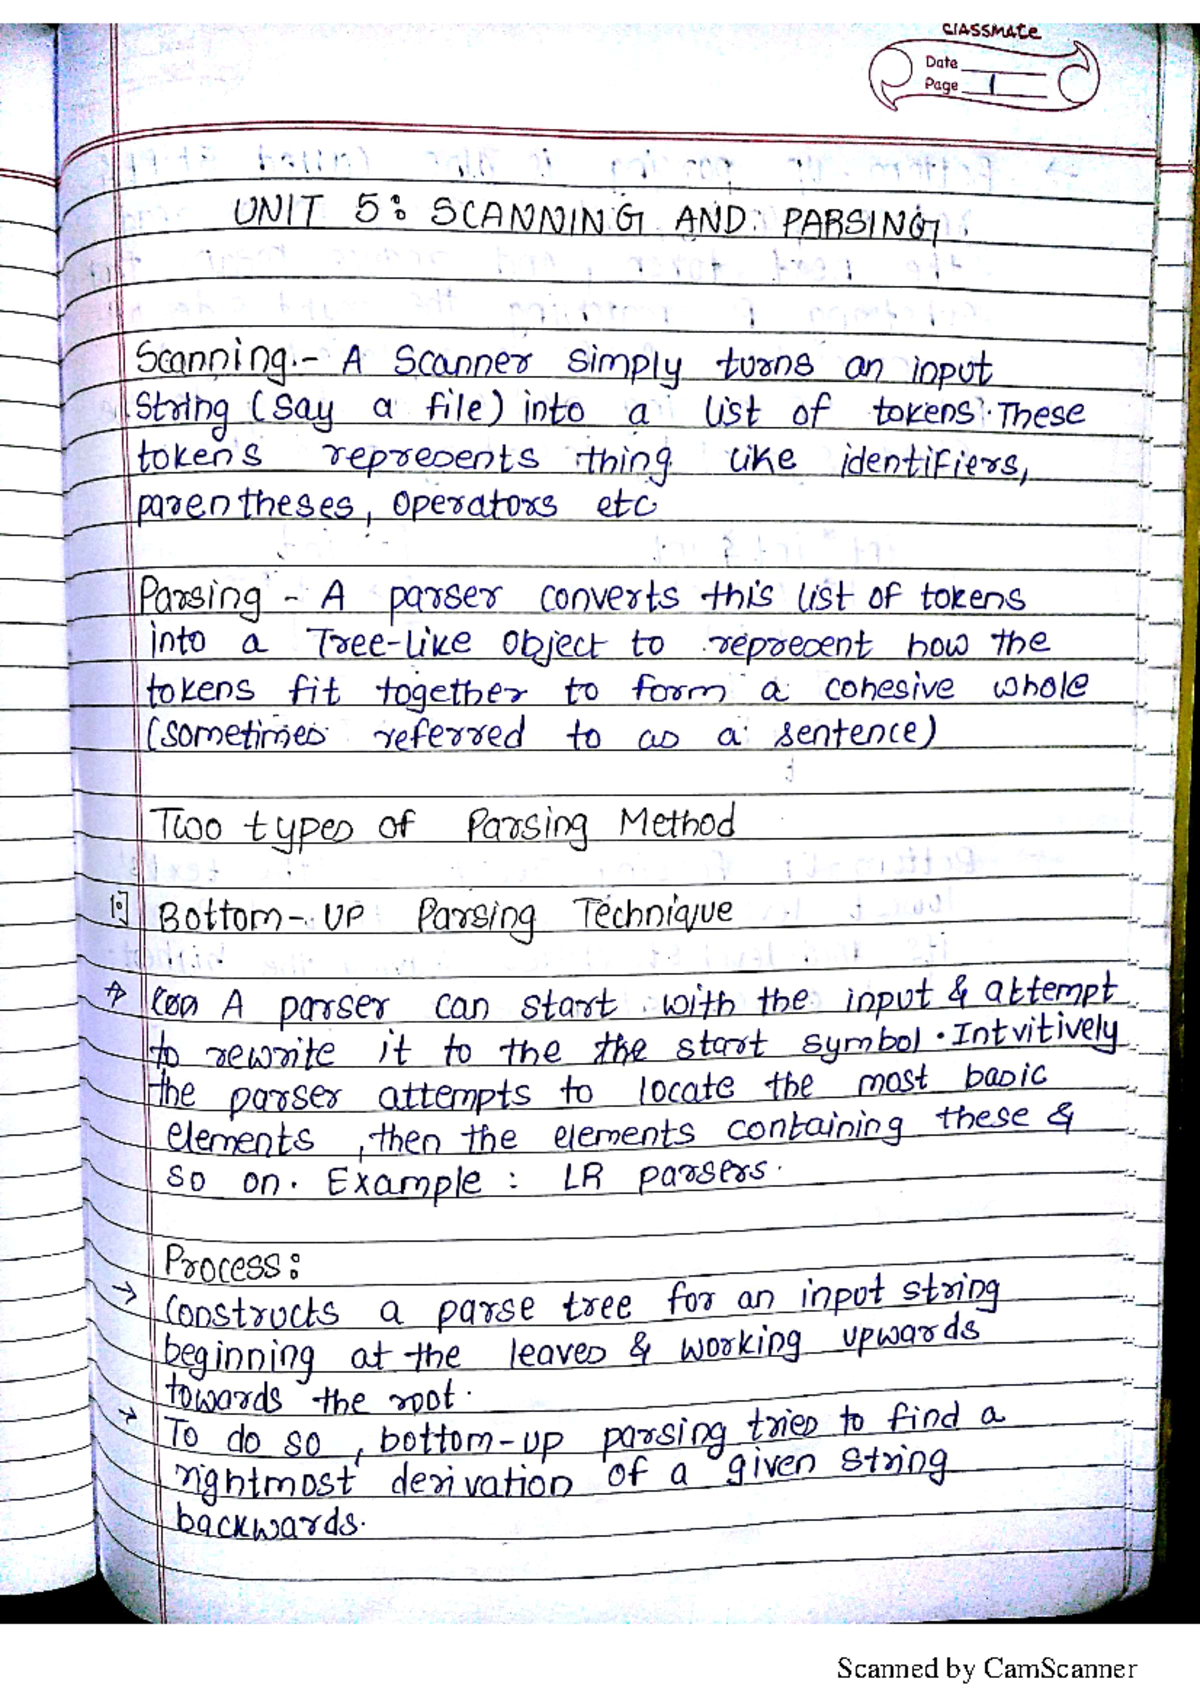 classmate
Date
Page 1
UNIT 5: SCANNING AND PARSING
Scanning:- A Scanner simply turns an input
string (say a file) into a list of tokens. These
tokens represents thing like identifiers,
parentheses, operators etc
Parsing - A parser converts this list of tokens
into a Tree-like object to represent how the
tokens fit together to form a cohesive whole
(sometimes referred to as a sentence)
Two types of Parsing Method
1:] Bottom-UP Parsing Technique
→ A parser can start with the input & attempt
to rewrite it to the the start symbol. Intvitively
the parser attempts to locate the most basic
elements, then the elements containing these &
so on. Example: LR parsers.
Process:
→ Constructs a parse tree for an input string
beginning at the leaves & working upwards
towards the root.
→ To do so, bottom-up parsing tries to find a
rightmost derivation of a given string
backwards.
Scanned by CamScanner